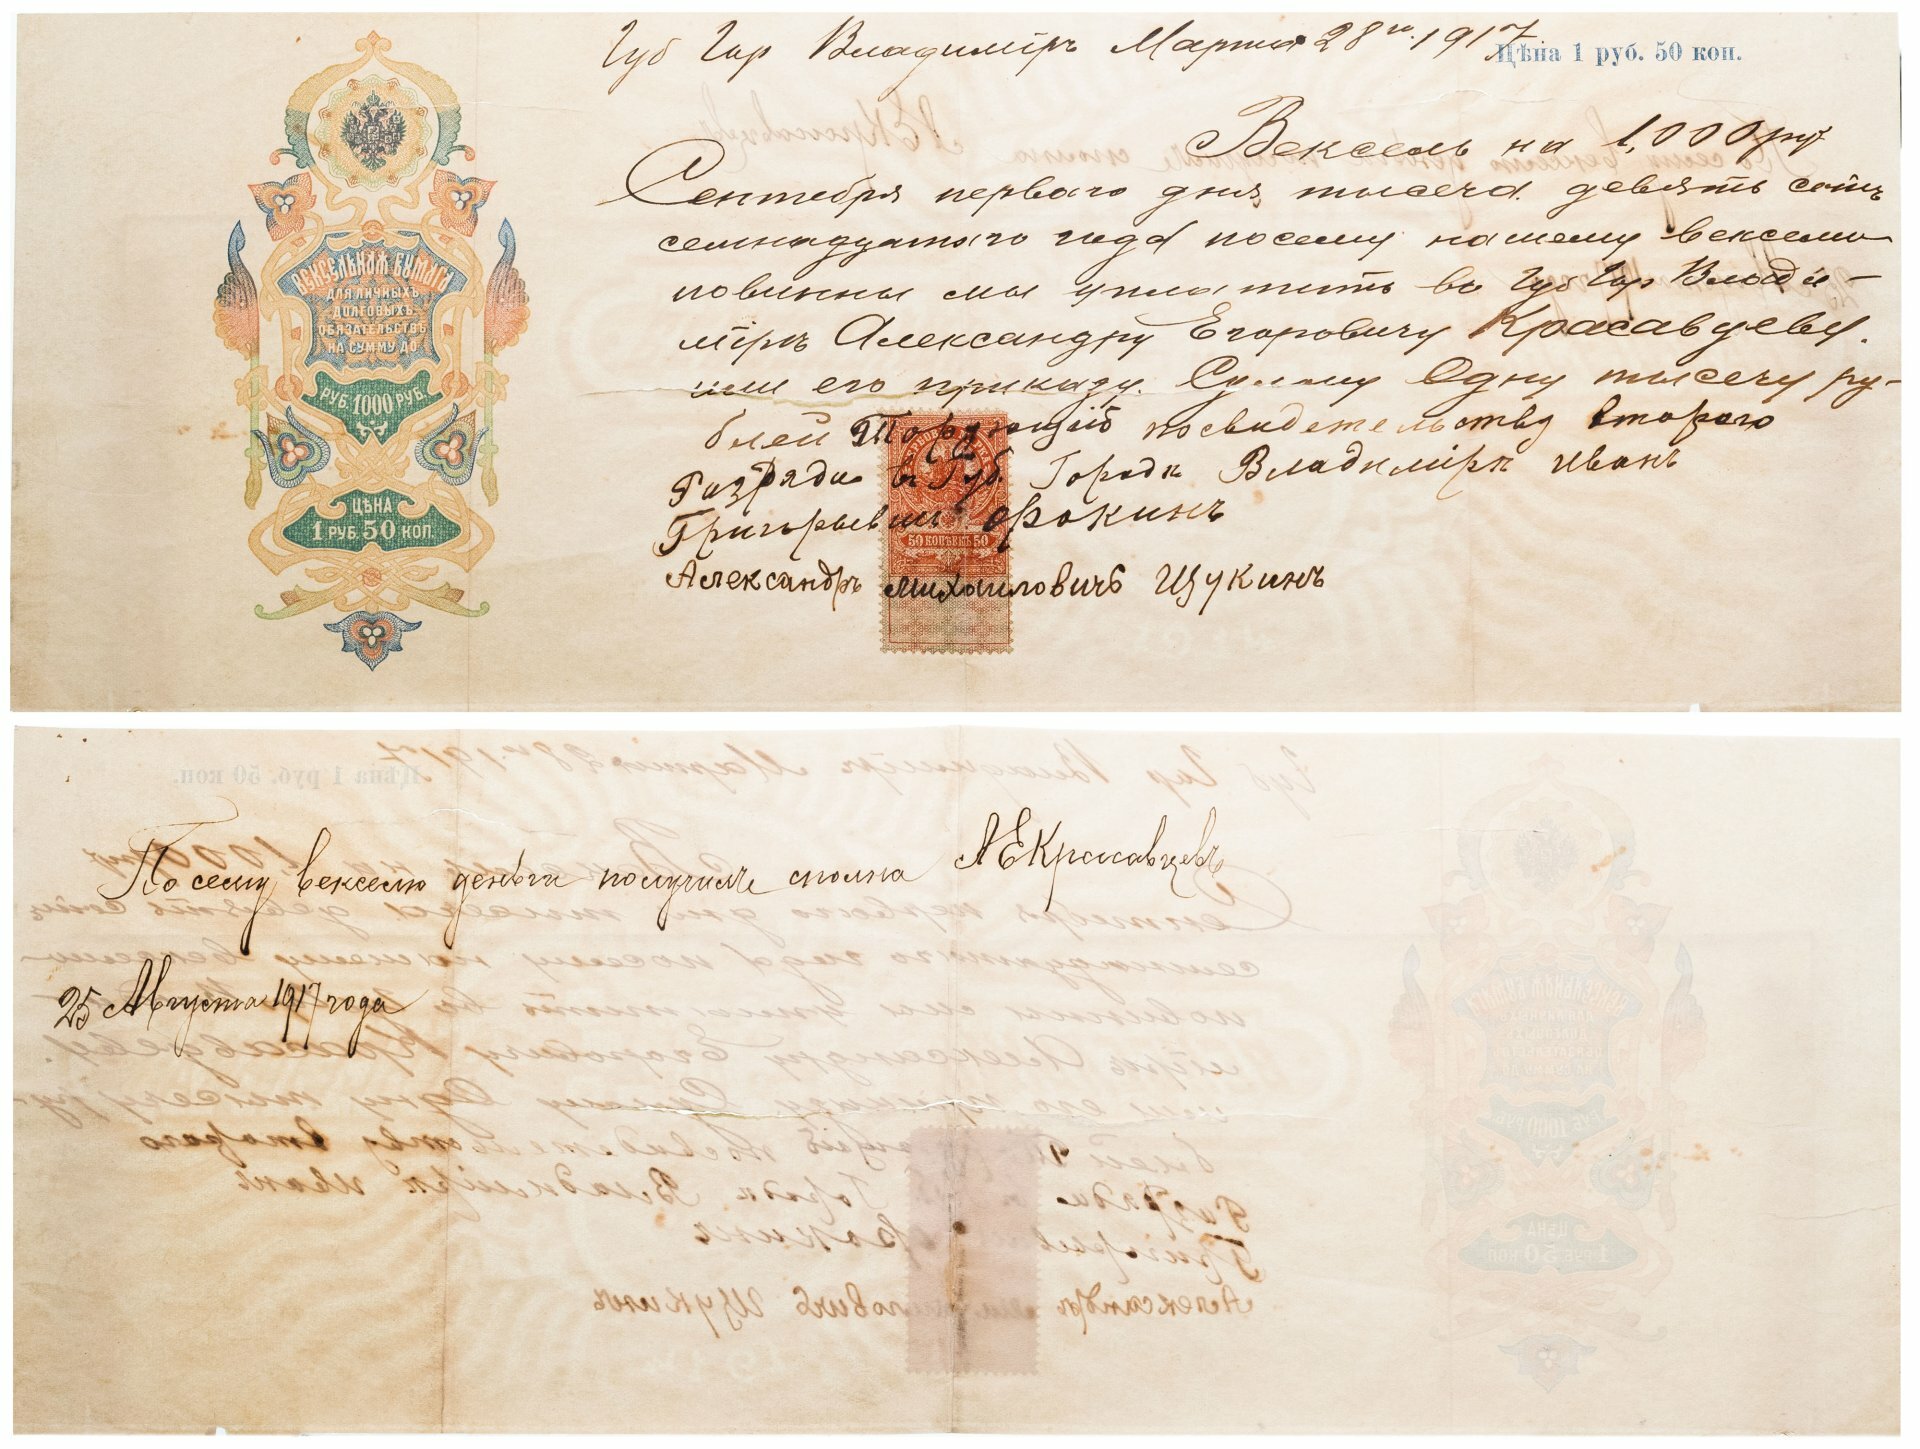 Губ Гор Владимiръ Марта 28го. 1917
Цѣна 1 руб. 50 коп.
Вексель на 1,000 руб
Сентября перваго дня тысеча девять сотъ
семнадцатого года посему нашему векселю
повинны мы уплатить во Губ Гор Влади-
мiръ Александру Егоровичу Красавцеву.
или его приказу. Сумму Одну тысечу ру-
блей Торгующiй посвидетельству второго
Разряда въ Губ. Городѣ Владимiрѣ Иванъ
Григорьевич Фокинъ
Александръ Михаиловичъ Щукинъ
ВЕКСЕЛЬНАЯ БУМАГА
ДЛЯ ЛИЧНЫХЪ
ДОЛГОВЫХЪ
ОБЯЗАТЕЛЬСТВЪ
НА СУММУ ДО
РУБ. 1000 РУБ.
ЦѢНА
1 РУБ. 50 КОП.
50 КОПѢЕКЪ 50
По сему векселю деньги получилъ сполна АЕКрасавцевъ
25 Августа 1917 года